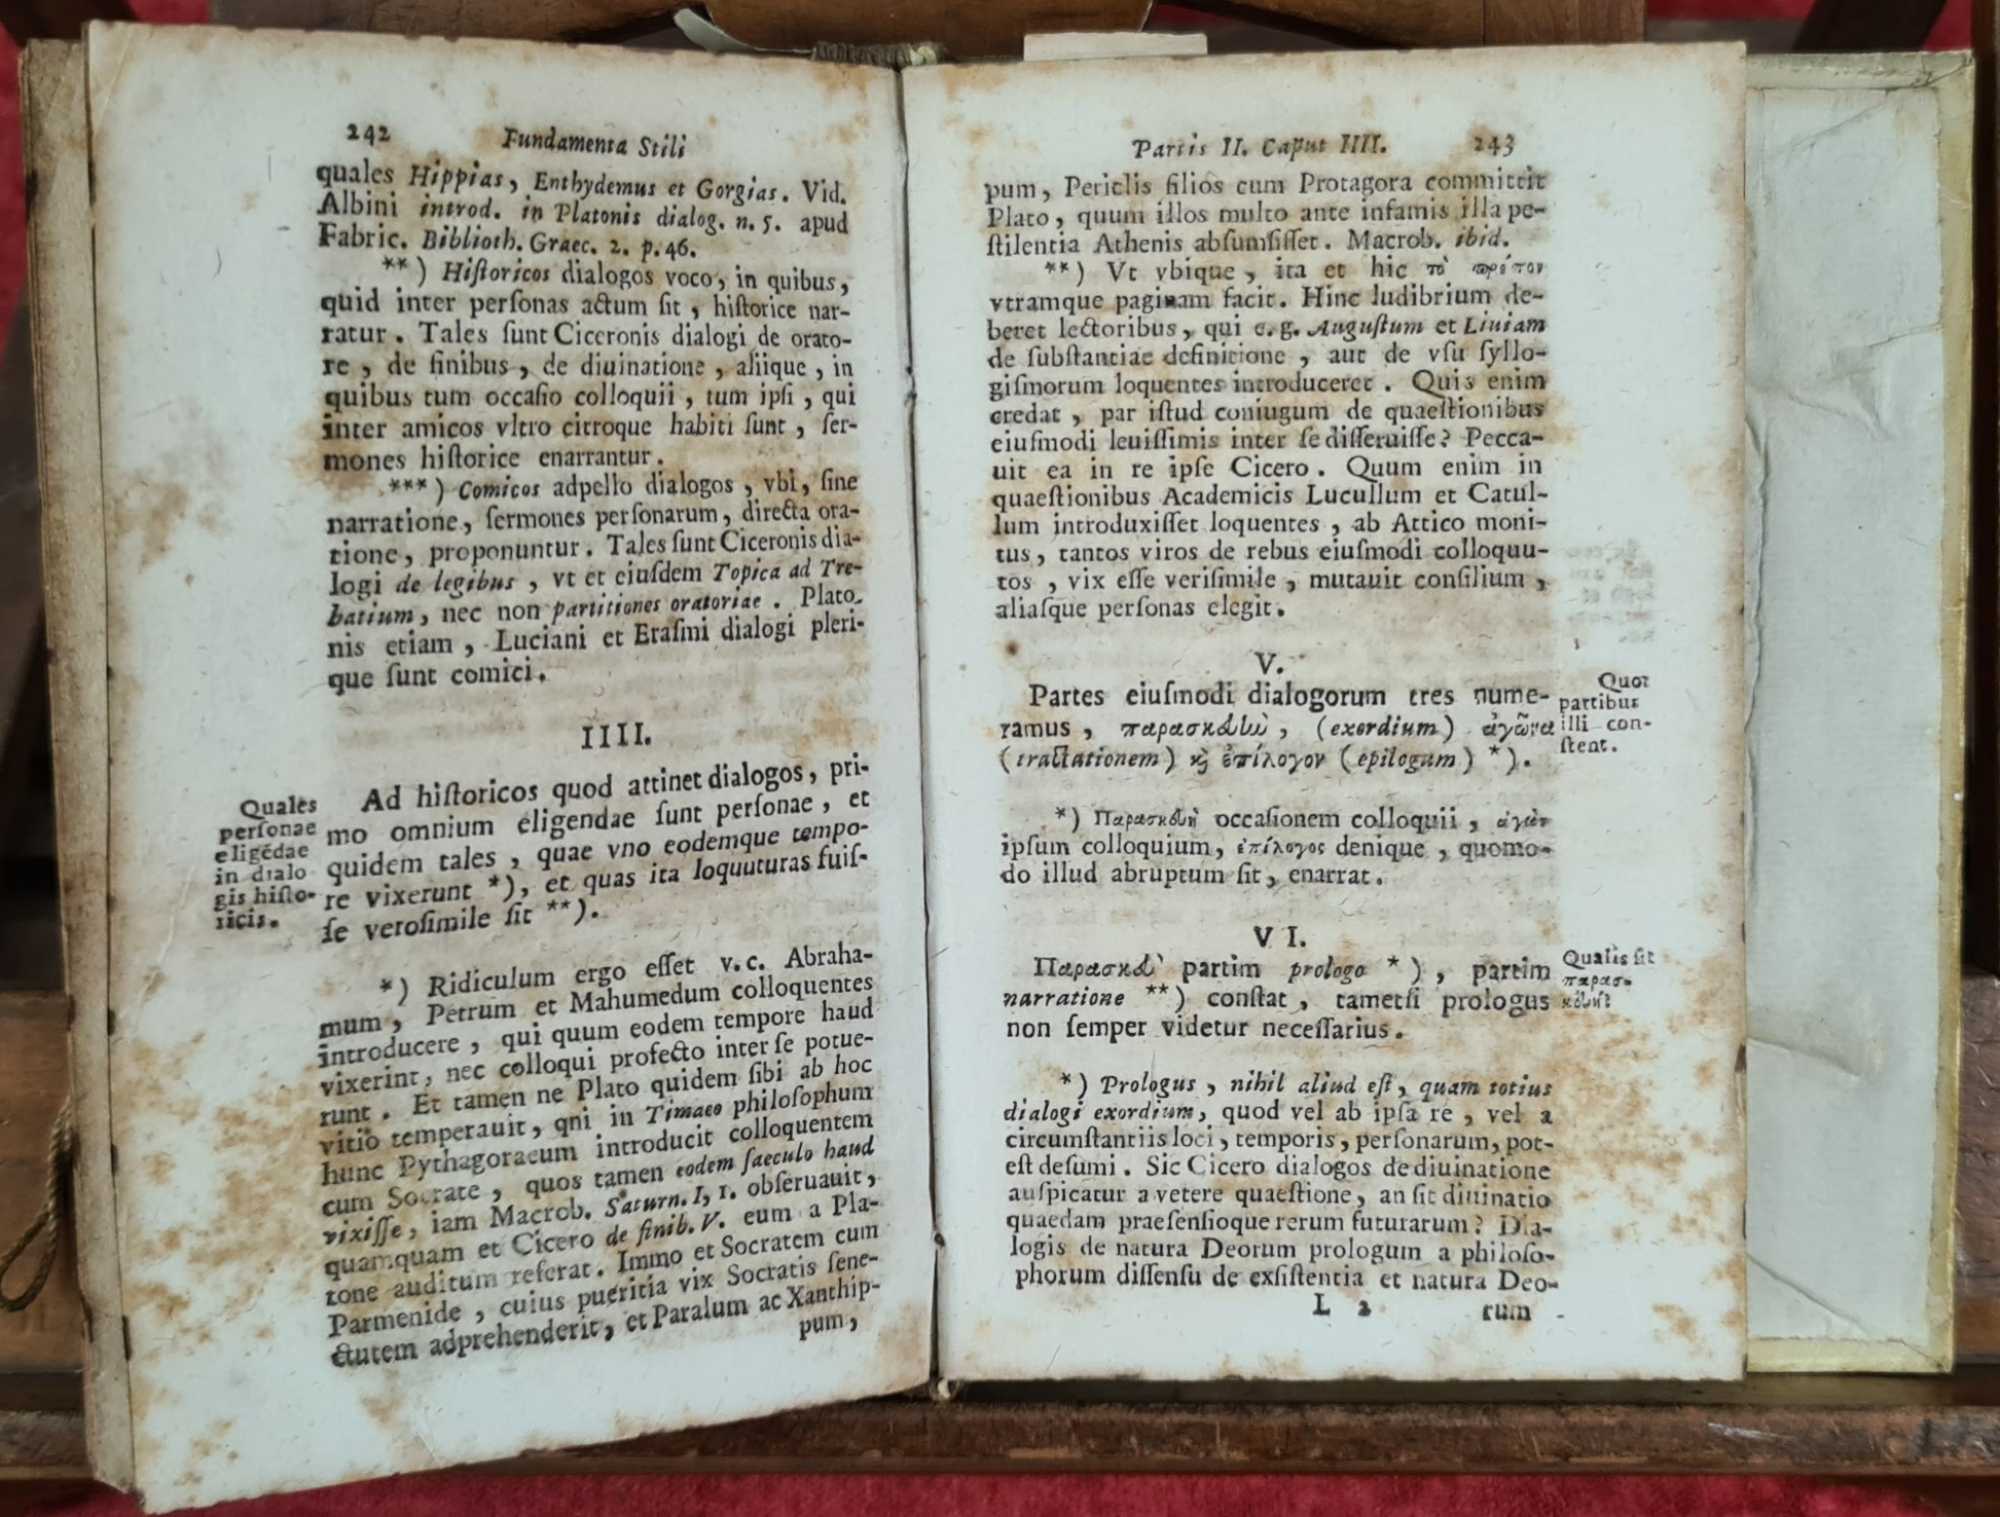 242 Fundamenta Stili
quales Hippias, Enthydemus et Gorgias. Vid.
Albini introd. in Platonis dialog. n. 5. apud
Fabric. Biblioth. Graec. 2. p. 46.
**) Hiſtoricos dialogos voco, in quibus,
quid inter perſonas actum ſit, hiſtorice nar-
ratur. Tales ſunt Ciceronis dialogi de orato-
re, de finibus, de diuinatione, aliique, in
quibus tum occaſio colloquii, tum ipſi, qui
inter amicos vltro citroque habiti ſunt, ſer-
mones hiſtorice enarrantur.
***) Comicos adpello dialogos, vbi, ſine
narratione, ſermones perſonarum, directa ora-
tione, proponuntur. Tales ſunt Ciceronis dia-
logi de legibus, vt et eiuſdem Topica ad Tre-
batium, nec non partitiones oratoriae. Plato-
nis etiam, Luciani et Eraſmi dialogi pleri-
que ſunt comici.
IIII.
Quales
perſonae
eligēdae
in dialo
gis hiſto-
ricis.
Ad hiſtoricos quod attinet dialogos, pri-
mo omnium eligendae ſunt perſonae, et
quidem tales, quae vno eodemque tempo-
re vixerunt *), et quas ita loquuturas fuiſ-
ſe veroſimile ſit **).
*) Ridiculum ergo eſſet v. c. Abraha-
mum, Petrum et Mahumedum colloquentes
introducere, qui quum eodem tempore haud
vixerint, nec colloqui profecto inter ſe potue-
runt. Et tamen ne Plato quidem ſibi ab hoc
vitio temperauit, qni in Timaeo philoſophum
hunc Pythagoraeum introducit colloquentem
cum Socrate, quos tamen eodem ſaeculo haud
vixiſſe, iam Macrob. Saturn. I, 1. obſeruauit,
quamquam et Cicero de finib. V. eum a Pla-
tone auditum referat. Immo et Socratem cum
Parmenide, cuius pueritia vix Socratis ſene-
ctutem adprehenderit, et Paralum ac Xanthip-
pum,
Partis II. Caput IIII. 243
pum, Periclis filios cum Protagora committit
Plato, quum illos multo ante infamis illa pe-
ſtilentia Athenis abſumſiſſet. Macrob. ibid.
**) Vt vbique, ita et hic τὸ πρέπον
vtramque paginam facit. Hinc ludibrium de-
beret lectoribus, qui e. g. Auguſtum et Liuiam
de ſubſtantiae definitione, aut de vſu ſyllo-
giſmorum loquentes introduceret. Quis enim
credat, par iſtud coniugum de quaeſtionibus
eiuſmodi leuiſſimis inter ſe diſſeruiſſe? Pecca-
uit ea in re ipſe Cicero. Quum enim in
quaeſtionibus Academicis Lucullum et Catul-
lum introduxiſſet loquentes, ab Attico moni-
tus, tantos viros de rebus eiuſmodi colloquu-
tos, vix eſſe veriſimile, mutauit conſilium,
aliaſque perſonas elegit.
V.
Partes eiuſmodi dialogorum tres nume-
ramus, παρασκευὴν, (exordium) ἀγῶνα
(tractationem) καὶ ἐπίλογον (epilogum) *).
Quot
partibus
illi con-
ſtent.
*) Παρασκευὴ occaſionem colloquii, ἀγὼν
ipſum colloquium, ἐπίλογος denique, quomo-
do illud abruptum ſit, enarrat.
VI.
Παρασκευὴ partim prologo *), partim
narratione **) conſtat, tametſi prologus
non ſemper videtur neceſſarius.
Qualis ſit
παρασ-
κευή?
*) Prologus, nihil aliud eſt, quam totius
dialogi exordium, quod vel ab ipſa re, vel a
circumſtantiis loci, temporis, perſonarum, pot-
eſt deſumi. Sic Cicero dialogos de diuinatione
auſpicatur a vetere quaeſtione, an ſit diuinatio
quaedam praeſenſioque rerum futurarum? Dia-
logis de natura Deorum prologum a philoſo-
phorum diſſenſu de exſiſtentia et natura Deo-
L 2 rum